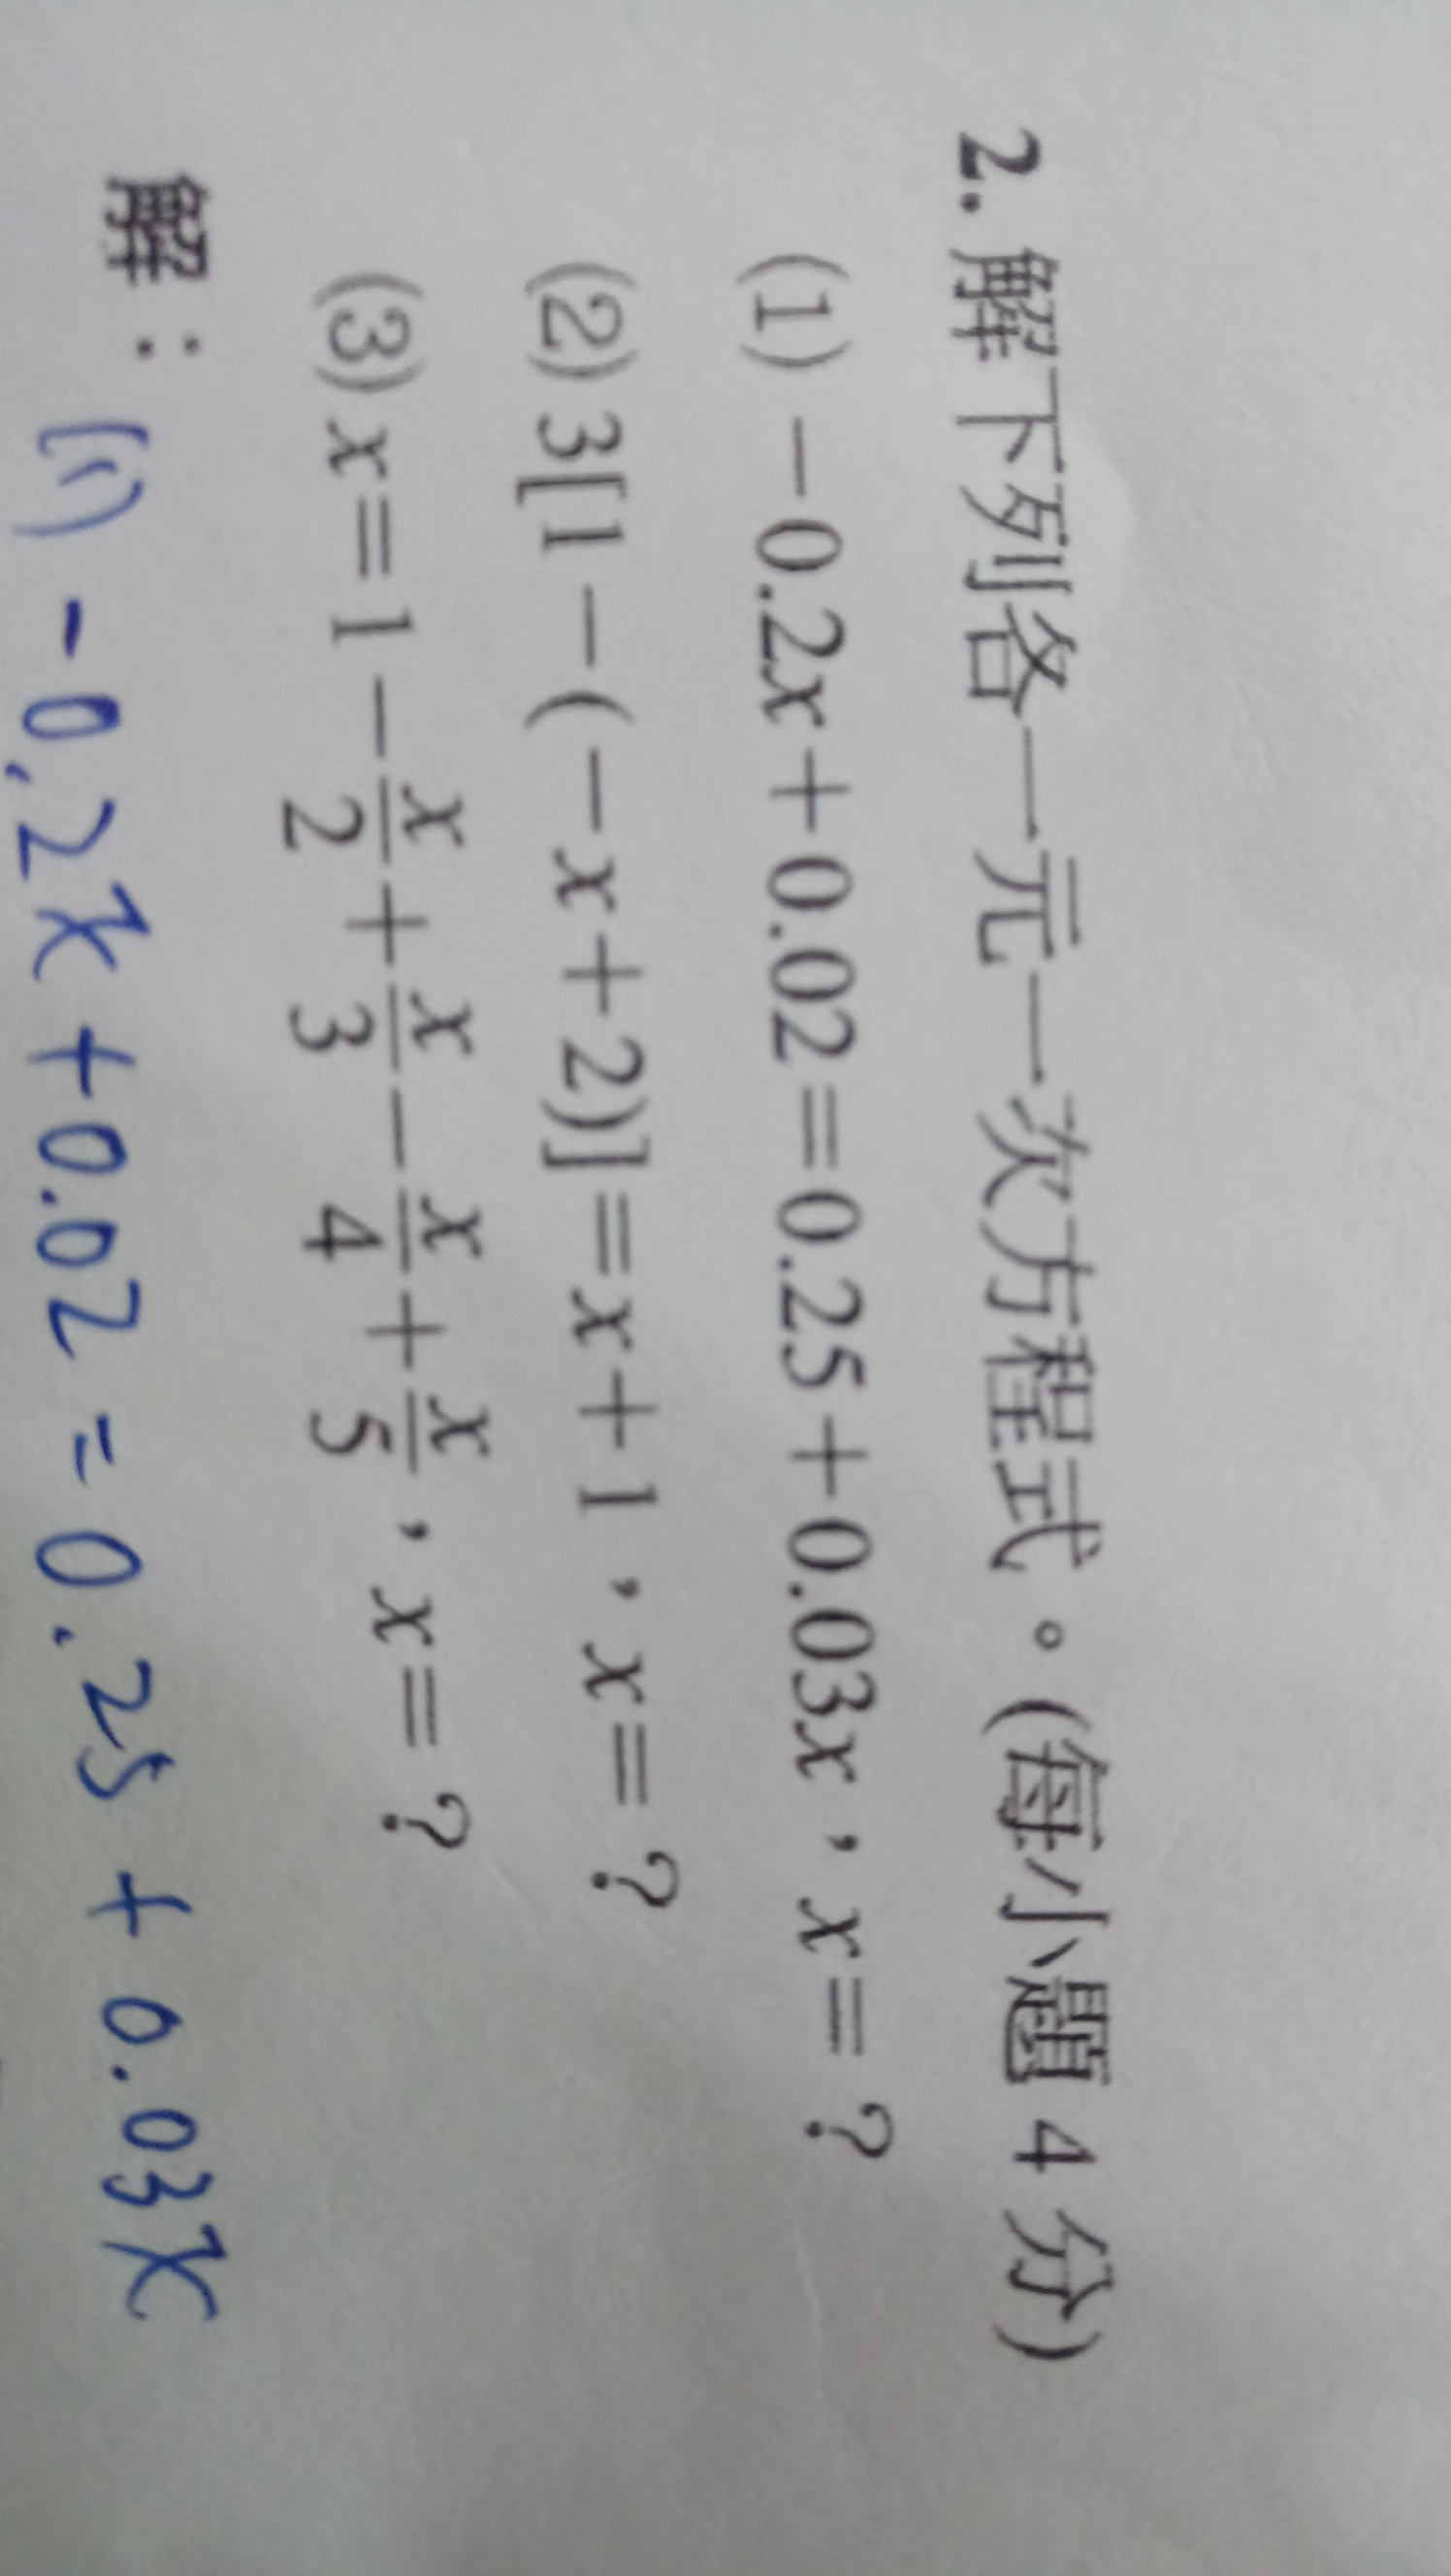 2. 解下列各一元一次方程式。(每小題 4 分)
(1) －0.2x＋0.02＝0.25＋0.03x，x＝？
(2) 3[1－(－x＋2)]＝x＋1，x＝？
(3) x＝1－x/2＋x/3－x/4＋x/5，x＝？
解：(1) -0.2x+0.02=0.25+0.03x